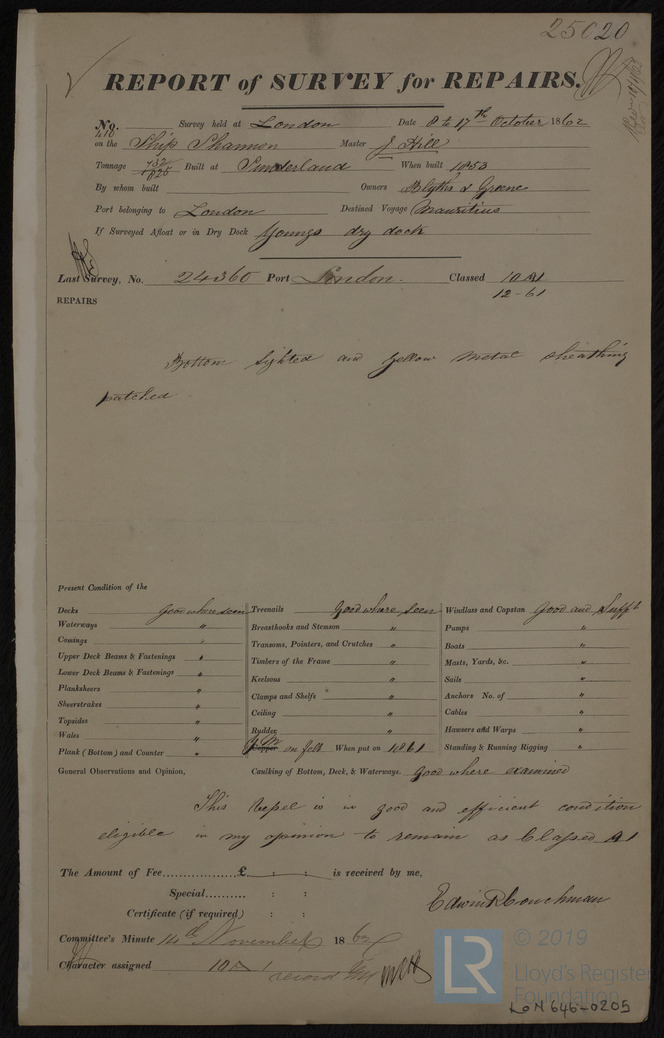 25020
REPORT of SURVEY for REPAIRS.
No. Survey held at London Date 8 to 17th October 1862
on the Ship Shannon Master J Hill
Tonnage Built at Sunderland When built 1853
By whom built Owners Blyths & Greene
Port belonging to London Destined Voyage Mauritius
If Surveyed Afloat or in Dry Dock Youngs dry dock
Last Survey, No. 24360 Port London. Classed 10 A1
12-61
REPAIRS
Bottom sighted and yellow metal sheathing
patched
Present Condition of the
Decks Good where seen
Waterways "
Comings "
Upper Deck Beams & Fastenings "
Lower Deck Beams & Fastenings "
Planksheers "
Sheerstrakes "
Topsides "
Wales "
Plank (Bottom) and Counter "
Treenails Good where seen
Breasthooks and Stemson "
Transoms, Pointers, and Crutches "
Timbers of the Frame "
Keelsons "
Clamps and Shelfs "
Ceiling "
Rudder "
Y M Copper on felt When put on 1861
Windlass and Capstan Good and Sufft
Pumps "
Boats "
Masts, Yards, &c. "
Sails "
Anchors No. of "
Cables "
Hawsers and Warps "
Standing & Running Rigging "
General Observations and Opinion, Caulking of Bottom, Deck, & Waterways. Good where examined
This Vessel is in good and efficient condition
eligible in my opinion to remain as Classed A1
The Amount of Fee..................£ : : is received by me,
Special.......... : :
Certificate (if required) : :
Edwin R Couchman
Committee's Minute 14th November 1862
Character assigned 10 A 1
record
© 2019
LR
Lloyd's Register
Foundation
LON 646-0205